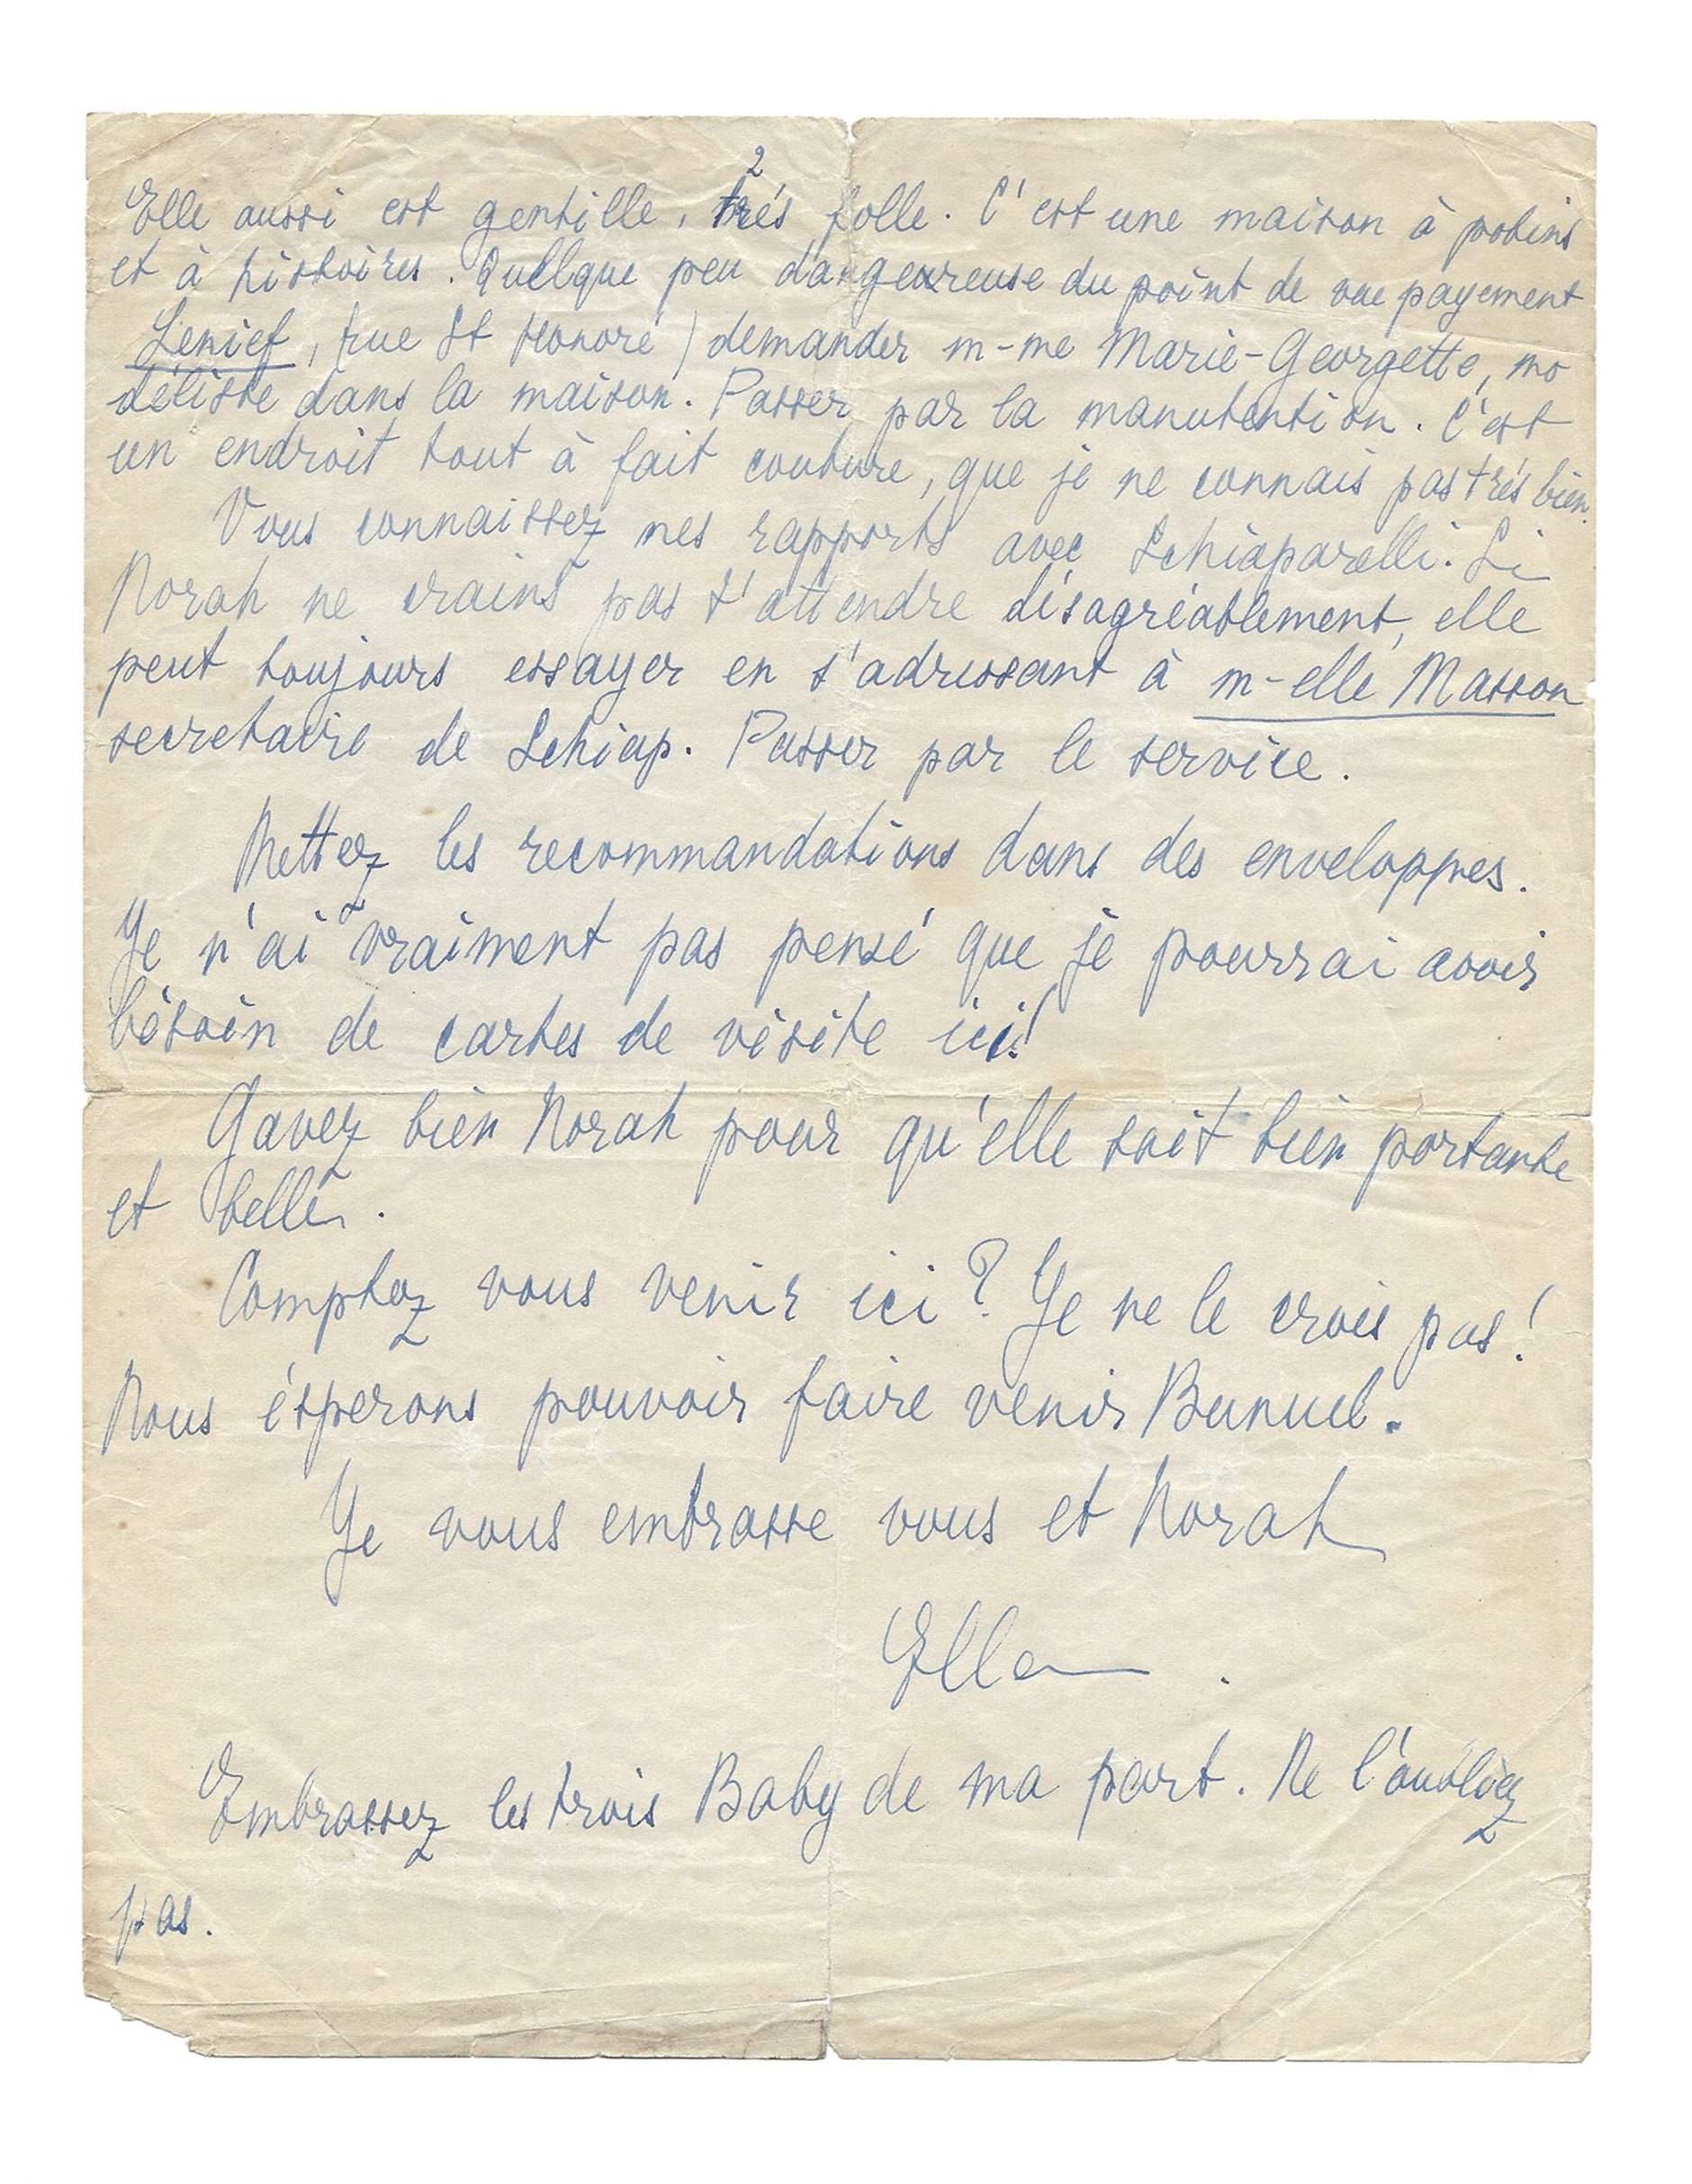 2
Elle aussi est gentille, très folle. C'est une maison à potins
et à histoires. Quelque peu dangereuse du point de vue payement
Lenief, (rue St Honoré) demander m-me Marie-Georgette, mo
déliste dans la maison. Passer par la manutention. C'est
un endroit tout à fait couture, que je ne connais pas trés bien.
Vous connaissez mes rapports avec Schiaparelli. Si
Norah ne crains pas d'attendre désagréablement, elle
peut toujours essayer en s'adressant à m-elle Masson
secretaire de Schiap. Passer par le service.
Mettez les recommandations dans des enveloppes.
Je n'ai vraiment pas pensé que je pourrai avoir
bésoin de cartes de visite ici!
Gavez bien Norah pour qu'elle soit bien portante
et belle.
Comptez vous venir ici? Je ne le crois pas!
Nous ésperons pouvoir faire venir Bunuel.
Je vous embrasse vous et Norah
Ella.
Embrassez les trois Baby de ma part. Ne l'oubliez
pas.